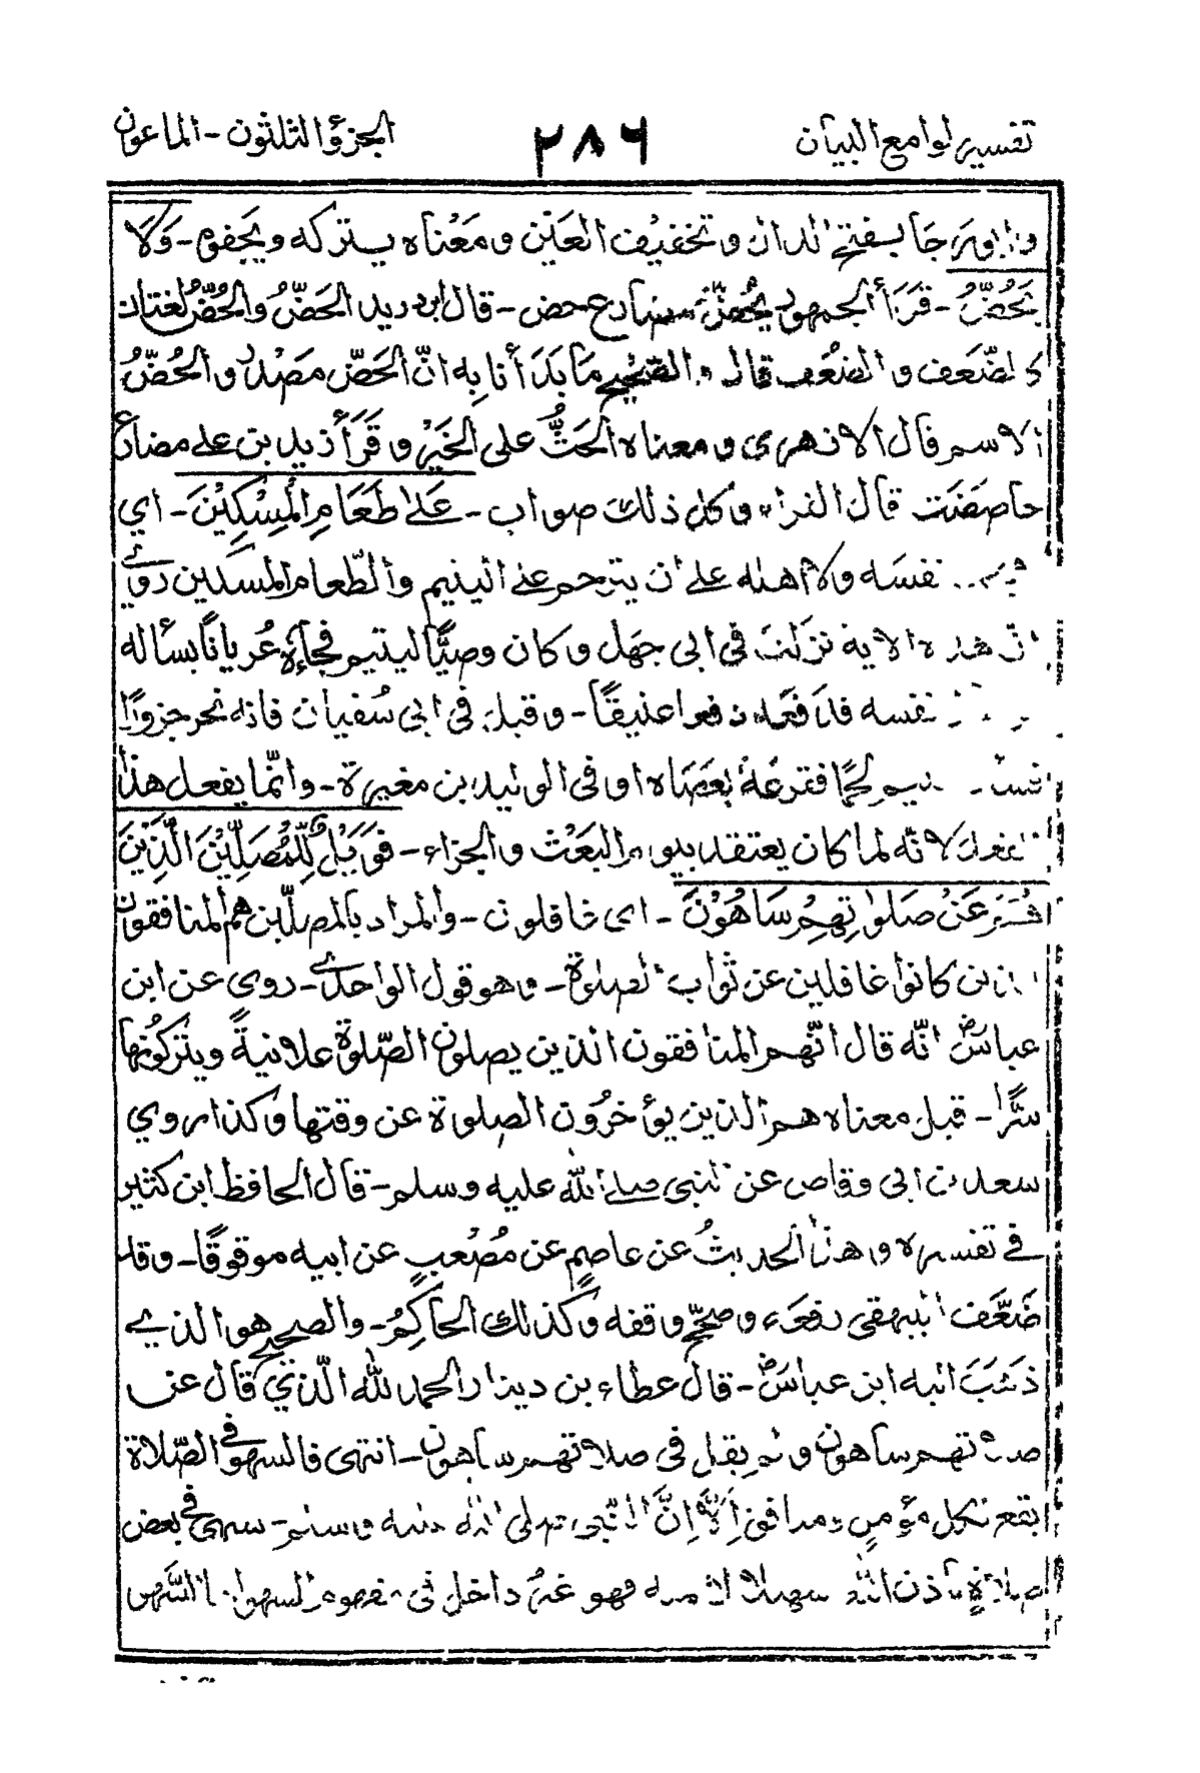 تفسير لوامع البيان ٢٨٦ الجزؤ الثلثون - الماعون
وابو رجا بفتح الدال وتخفيف العين ومعناه يتركه ويجفوه - وَلَا
يَحُضُّ - قَرَأ الجمهور يَحُضُّ مضارع حض - قال ابن دريد الحَضُّ والحُضُّ لغتان
كالضَّعف والضُّعف قال والصّحيح مَا بَدَأنا بِه انّ الحَضّ مَصْدر والحُضُّ
الاسم قال الازهرى ومعناه الحَثُّ على الخَيْر وقَرَأ زيد بن على مضارع
حاضضت قال الفراء وكل ذلك صواب - عَلىٰ طَعَامِ الْمِسْكِيْنَ - اي
نفسَه ولا اهله على ان يترحم على اليتيم والطّعام المسكين روي
انّ هذه الاية نزلت فى ابى جهل وكان وصيًّا ليتيم فجاءه عُريانًا يساله
نفسه فدَفعَه دفعا عنيفًا - وقيل فى ابى سُفيان فانه نحر جزورًا
يتيم لحمًا فقرعَهُ بعَصَاه او فى الوليد بن مغيرة - وانّما يفعل هذا
الفعل لانّه لما كان يعتقد بيوم البَعْث والجزاء - فَوَيْلٌ لِّلْمُصَلِّيْنَ الَّذِيْنَ
هُمْ عَنْ صَلوٰتِهِمْ سَاهُوْنَ - اى غافلون - والمراد بالمصلّين هم المنافقون
الذين كانوا غافلين عن ثواب الصلوٰة - وهو قول الواحدي - روى عن ابن
عباسؓ انّه قال انّهم المنافقون الذين يصلون الصّلوٰة علانيةً ويتركُونها
سرًّا - قيل معناه هم الذين يؤخرُون الصلوة عن وقتها وكذا روي
سعد بن ابى وقاص عن النبى صلى الله عليه وسلم - قال الحافظ ابن كثير
فى تفسيره وهذا الحديثُ عن عاصمٍ عن مُصْعبٍ عن ابيه موقوفًا - وقد
ضَعَّف البيهقى رفعه وصحّح وقفه وكذلك الحاكِمُ - والصحيح هو الذي
ذَهَبَ اليه ابن عباسؓ - قال عطاء بن دينار الحمد لله الّذي قال عن
صلاتهم ساهون ولم يقل فى صلاتهم ساهون - انتهى فالسهو فى الصّلاة
يقع لكل مؤمنٍ ومنافق اِلَّا اِنَّ النّبى صلى الله عليه وسلم - سهى فى بعض
فهو غيرُ داخل فى